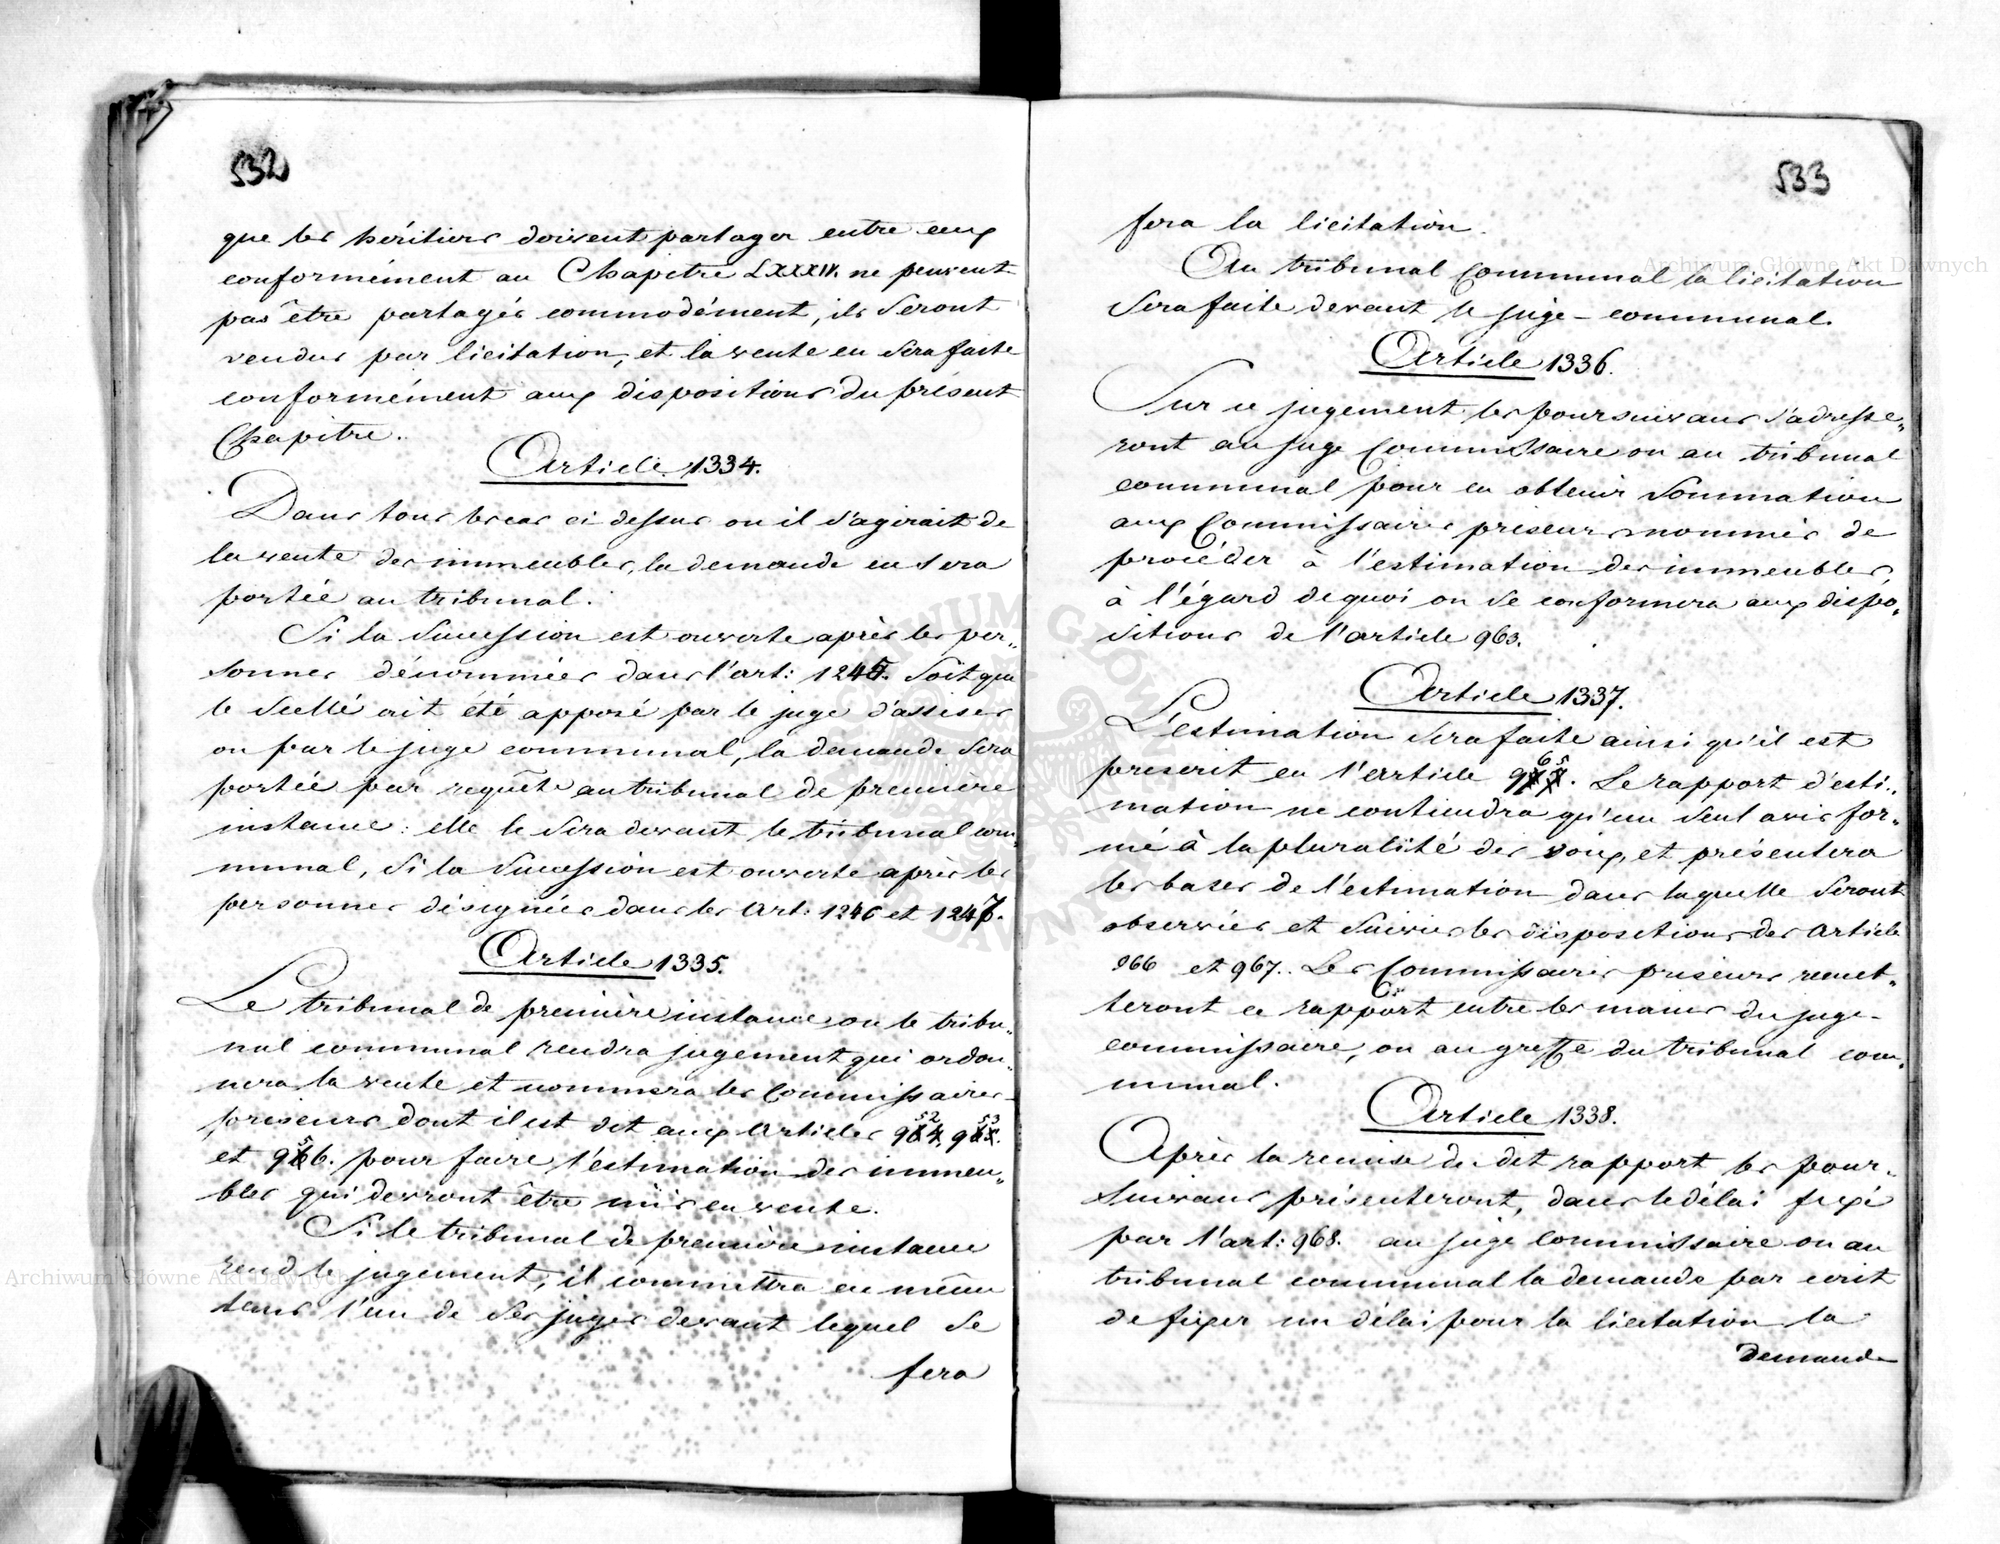 532
que les héritiers doivent partager entre eux
conformément au Chapitre LXXXIV. ne peuvent
pas être partagés commodément, ils seront
vendus par licitation, et la vente en sera faite
conformément aux dispositions du présent
Chapitre.
Article 1334.
Dans tous les cas ci dessus où il s'agirait de
la vente des immeubles, la demande en sera
portée au tribunal.
Si la succession est ouverte après les per„
sonnes dénommées dans l'art: 1245. soit que
le scellé ait été apposé par le juge d'assises
ou par le juge communal, la demande sera
portée par requête au tribunal de première
instance: elle le sera devant le tribunal com„
munal, si la succession est ouverte après les
personnes désignées dans les Art: 1246 et 1247.
Article 1335.
Le tribunal de première instance ou le tribu„
nal communal rendra jugement qui ordon„
nera la vente et nommera les Commissaires-
priseurs dont il est dit aux Articles 952, 953.
et 956. pour faire l'estimation des immeu„
bles qui devront être mis en vente.
Si le tribunal de première instance
rend le jugement, il commettra en même
tems l'un de ses juges devant lequel se
fera
533
fera la licitation.
Au tribunal communal la licitation
sera faite devant le juge-communal.
Article 1336.
Sur ce jugement les poursuivans s'adresse„
ront au juge Commissaire ou au tribunal
communal pour en obtenir sommation
aux Commissaires priseurs nommés de
procéder à l'estimation des immeubles,
à l'égard de quoi on se conformera aux dispo„
sitions de l'article 963.
Article 1337.
L'estimation sera faite ainsi qu'il est
prescrit en l'Article 965. Le rapport d'esti„
mation ne contiendra qu'un seul avis for„
mé à la pluralité des voix, et présentera
les bases de l'estimation dans laquelle seront
observées et suivies les dispositions des Article
966 et 967. Les Commissaires priseurs remet„
teront ce rapport entre les mains du juge-
commissaire, ou au greffe du tribunal com„
munal.
Article 1338.
Après la remise de dit rapport les pour„
suivans présenteront, dans le délai fixé
par l'art: 968. au juge commissaire ou au
tribunal communal la demande par écrit
de fixer un délai pour la licitation la
demande
Archiwum Główne Akt Dawnych
Archiwum Główne Akt Dawnych
ARCHIWUM GŁÓWNE AKT DAWNYCH